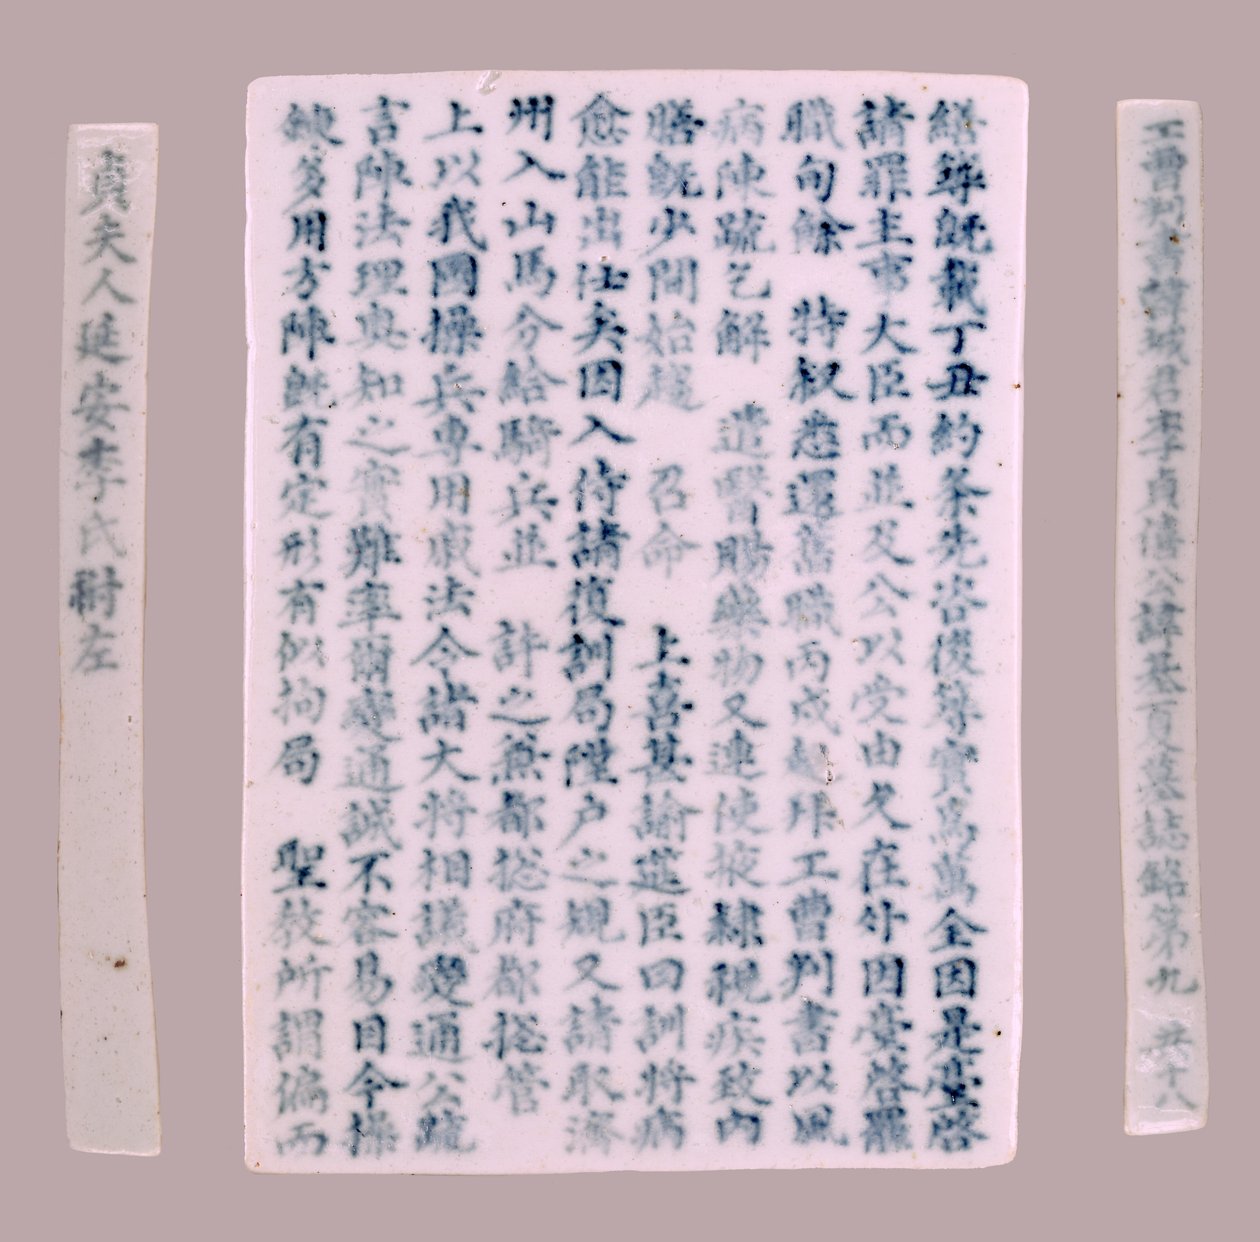 工曹判書韓城君李貞僖公諱基夏墓誌銘第九 五十八
繕舉旣載丁丑約条先咨後舉實爲萬全因是臺啓
請罪主事大臣而並及公以受由久在外因臺啓罷
職旬餘 特叙悉還舊職丙戌超拜工曹判書以風
病陳疏乞解 遣醫賜藥物又連使掖隷視疾致內
膳旣少間始趍 召命 上喜甚諭筵臣曰訓將病
愈能出仕矣因入侍請復訓局陞戶之規又請取濟
州入山馬分給騎兵並 許之兼都摠府都摠管
上以我國操兵專用戚法令諸大將相議變通公疏
言陣法理奧知之實難率爾變通誠不容易目今操
鍊多用方陣旣有定形有似拘局 聖敎所謂偏而
貞夫人延安李氏祔左